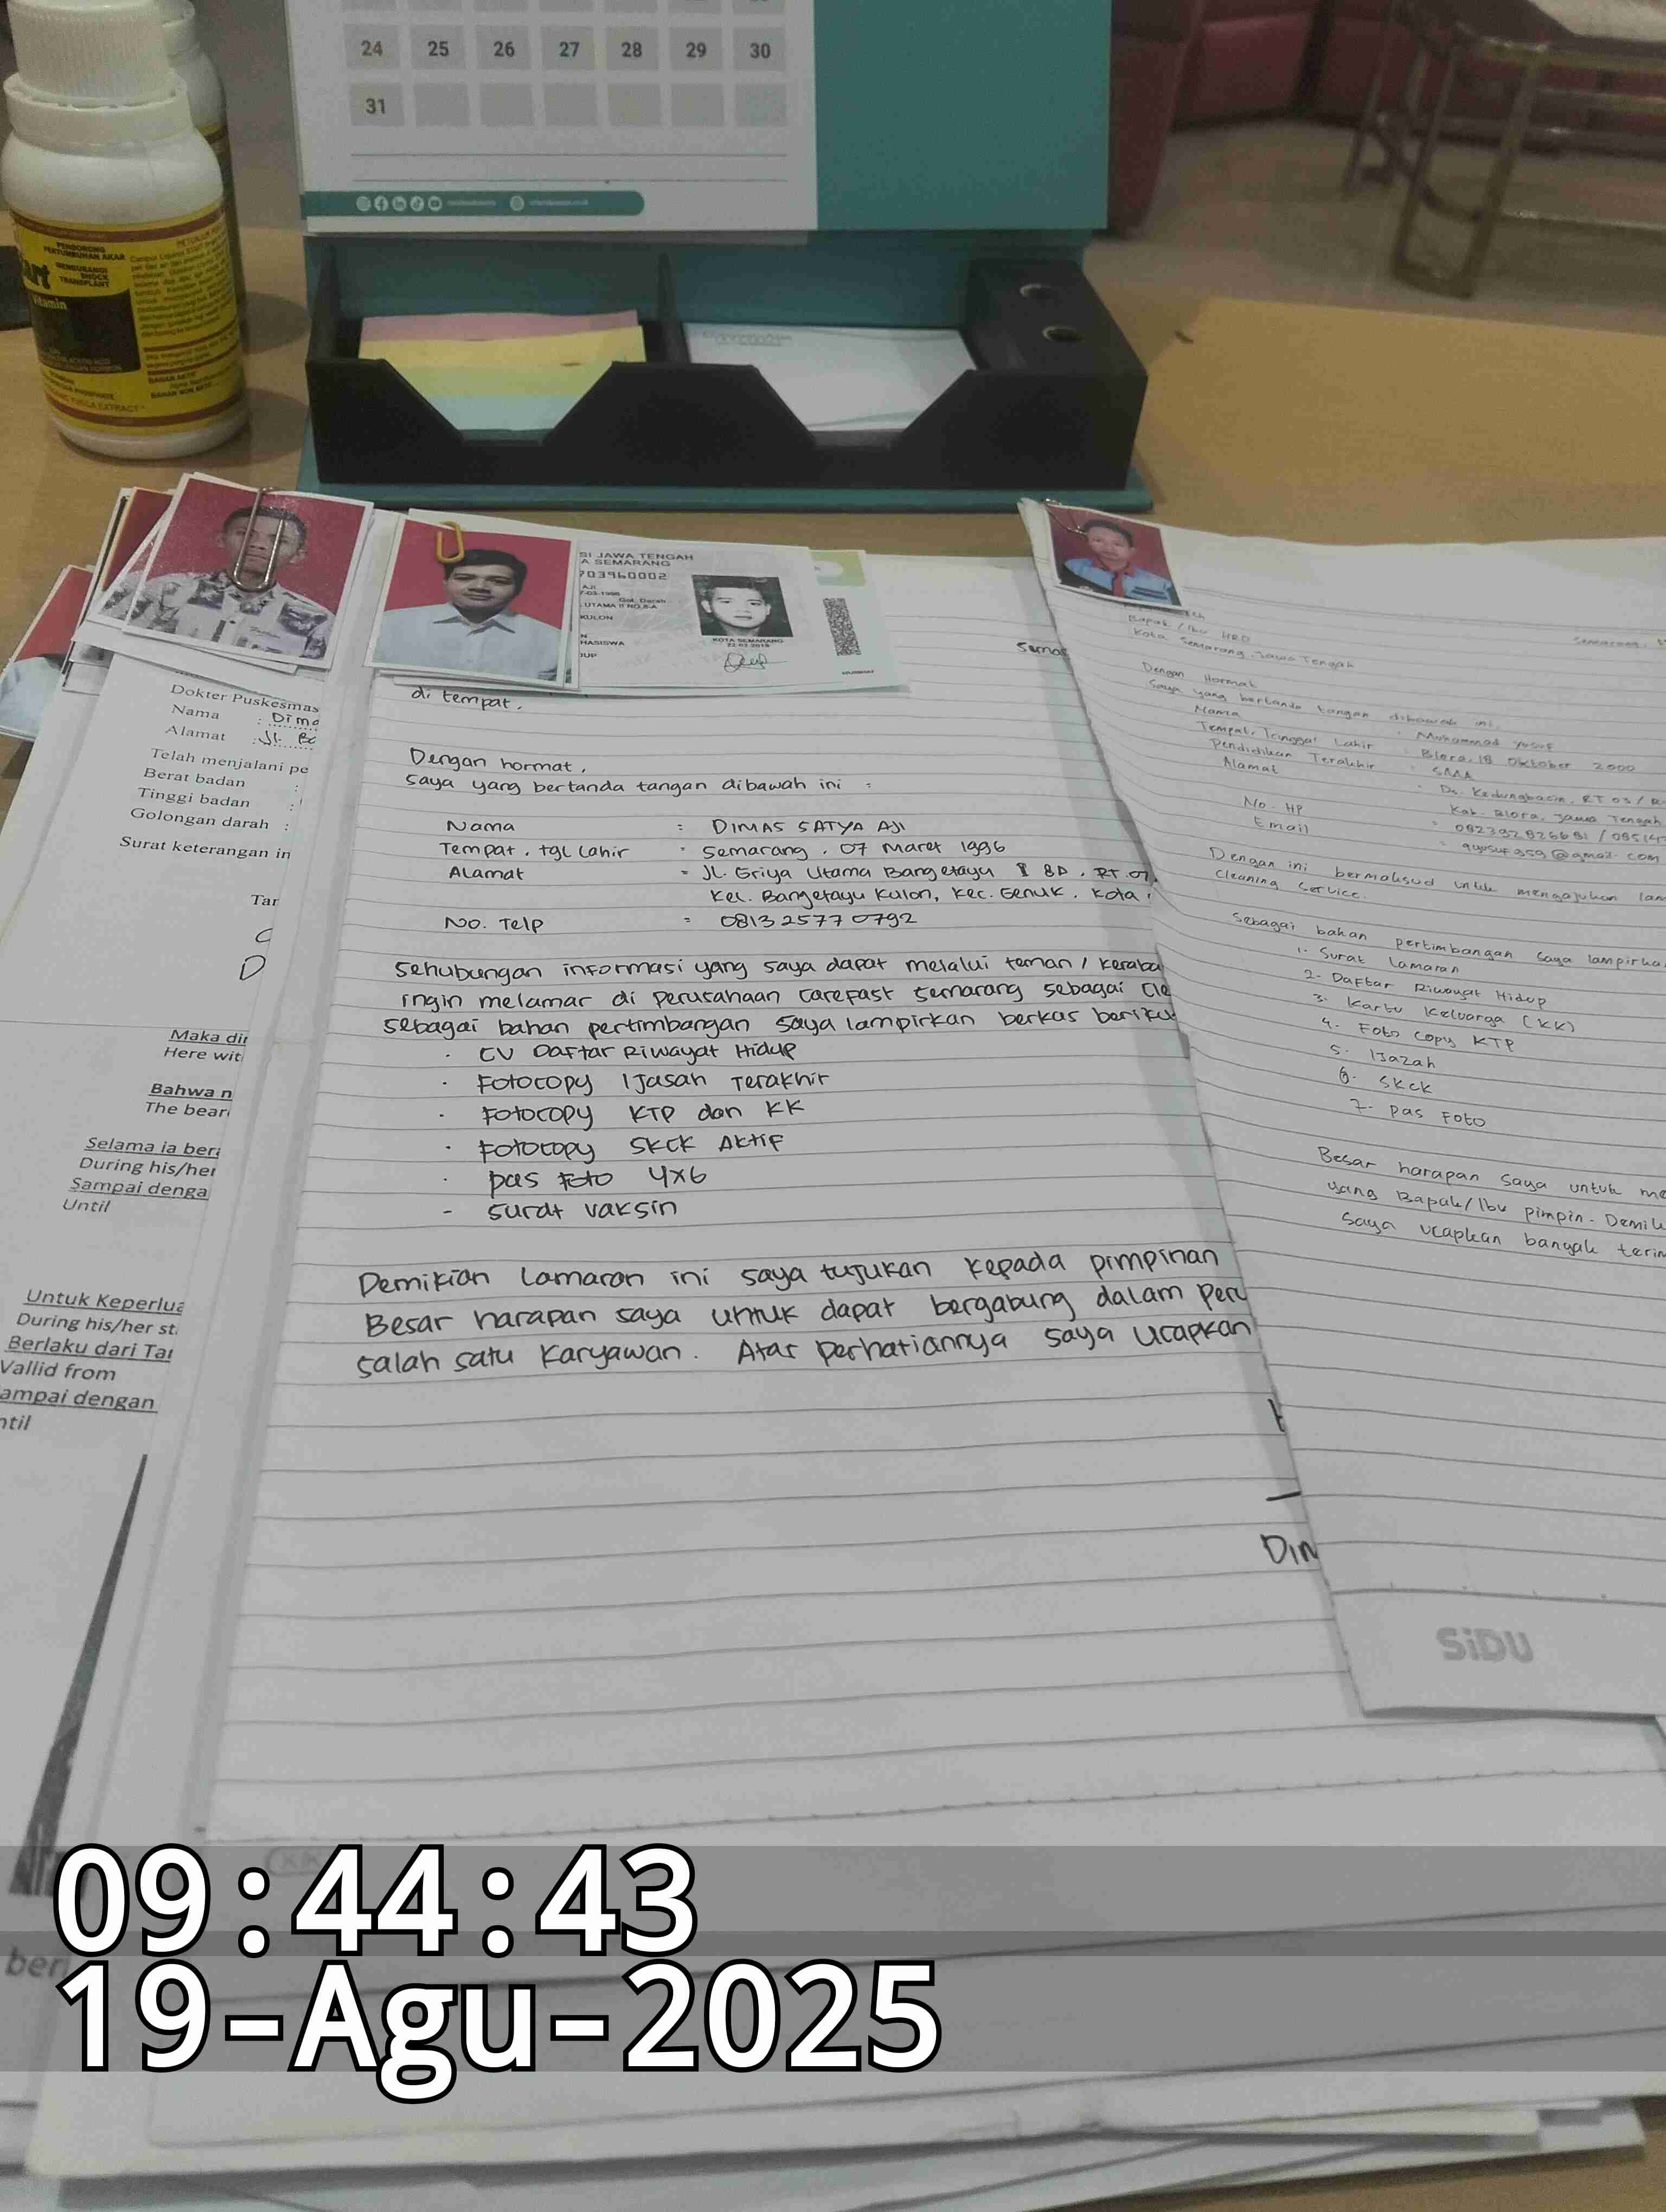 24 25 26 27 28 29 30
31
PENDORONG
PERTUMBUHAN AKAR
MENGURANGI
SHOCK
TRANSPLANT
Vitamin
SI JAWA TENGAH
A SEMARANG
703960002
AJI
7-03-1996
Gol. Darah
UTAMA II NO.8-A
KULON
HASISWA
KOTA SEMARANG
22-03-2018
Dokter Puskesmas
Nama : Dima
Alamat : Jl. Be
Telah menjalani pe
Berat badan :
Tinggi badan :
Golongan darah :
Surat keterangan in
Tar
Maka di
Here wit
Bahwa n
The bear
Selama ia ber
During his/her
Sampai denga
Until
Untuk Keperlua
During his/her st
Berlaku dari Ta
Vallid from
ampai dengan
ntil
beri
Semar
di tempat.
Dengan hormat,
saya yang bertanda tangan dibawah ini :
Nama : DIMAS SATYA AJI
Tempat, tgl Lahir : Semarang, 07 Maret 1996
Alamat : JL. Griya Utama Bangetayu 8D, RT.07
Kel. Bangetayu Kulon, Kec. Genuk. Kota
No. Telp : 0813 2577 0792
Sehubungan informasi yang saya dapat melalui teman / keraba
ingin melamar di perusahaan carefast semarang sebagai Cle
sebagai bahan pertimbangan saya lampirkan berkas beriku
· CV Daftar Riwayat Hidup
· Fotocopy Ijasah Terakhir
· Fotocopy KTP dan KK
· Fotocopy SKCK Aktif
· pas Foto 4x6
- surat vaksin
Demikian lamaran ini saya tujukan kepada pimpinan
Besar harapan saya untuk dapat bergabung dalam Peru
salah satu karyawan. Atas perhatiannya saya ucapkan
Dim
Bapak / Ibu HRD
Kota Semarang, Jawa Tengah
Semarang,
Dengan Hormat
Saya yang bertanda tangan dibawah ini.
Nama : Muhammad Yusuf
Tempat, Tanggal Lahir : Blora, 18 Oktober 2000
Pendidikan Terakhir : SMA
Alamat : Ds. Kedungbacin, RT 03 / R
Kab. Blora, Jawa Tengah
No. HP : 082392826681 / 085147
Email : qyusuf359@gmail.com
Dengan ini bermaksud untuk mengajukan lam
cleaning service.
Sebagai bahan pertimbangan saya lampirka
1. Surat Lamaran
2. Daftar Riwayat Hidup
3. Kartu Keluarga (KK)
4. Foto Copy KTP
5. Ijazah
6. SKCK
7. Pas Foto
Besar harapan saya untuk me
yang Bapak/Ibu pimpin. Demik
saya ucapkan banyak terim
SiDU
09:44:43
19-Agu-2025